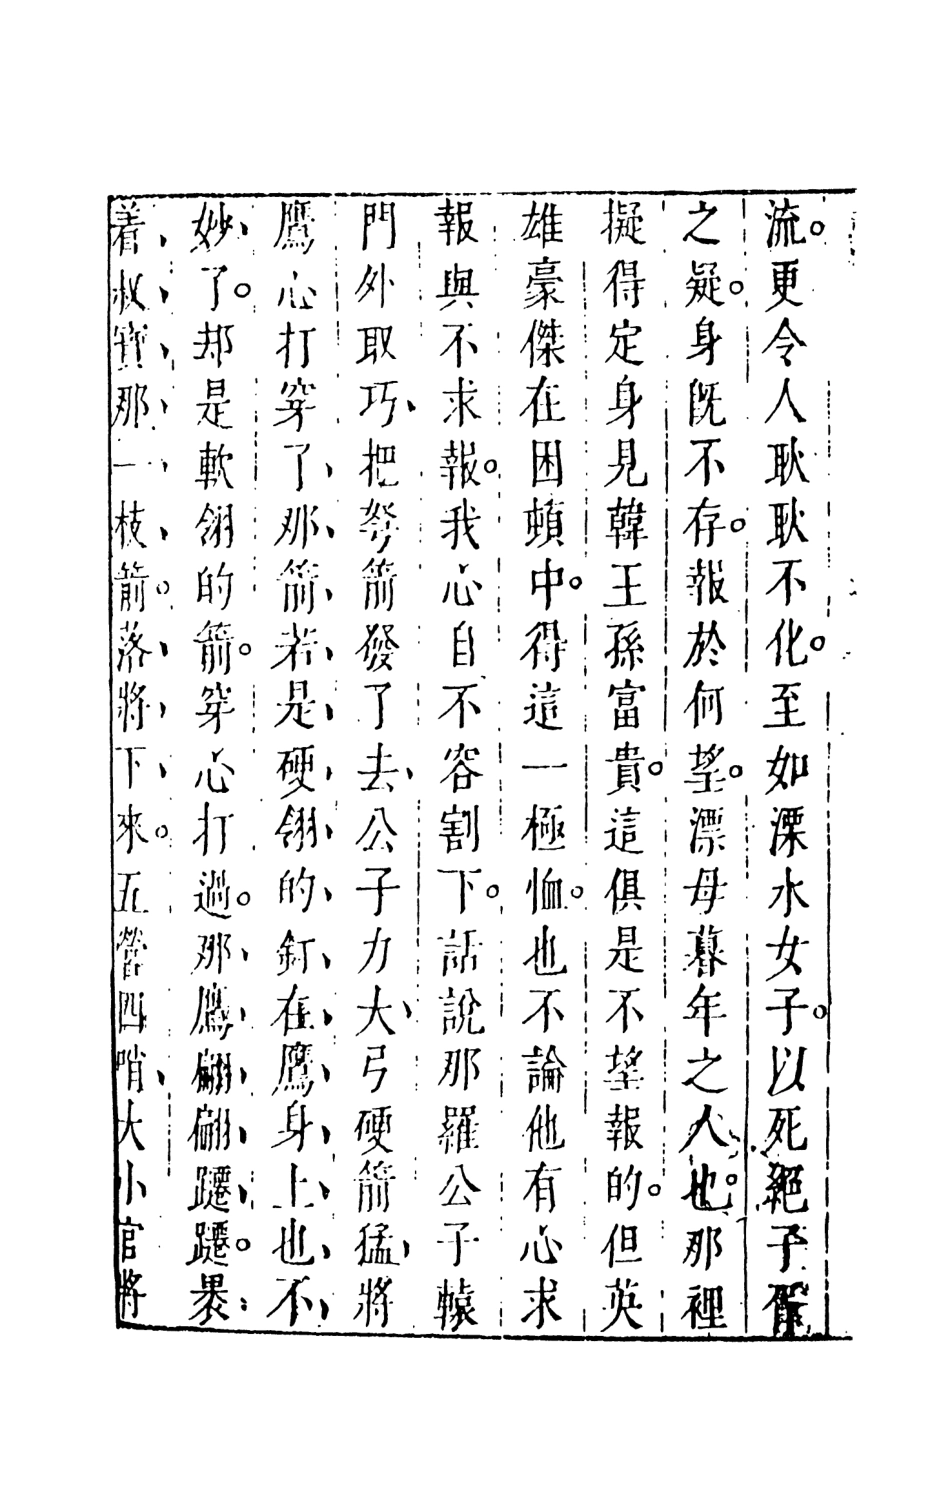 流。更令人耿耿不化。至如溧水女子。以死絕子胥
之疑。身既不存。報於何望。漂母暮年之人也。那裡
擬得定身見韓王孫富貴。這俱是不望報的。但英
雄豪傑在困頓中。得這一極恤。也不論他有心求
報與不求報。我心自不容割下。話說那羅公子轅
門外取巧、把弩箭發了去、公子力大、弓硬箭猛、將
鷹心打穿了、那、箭、若、是、硬、翎、的、釘、在、鷹、身、上、也、不、
妙、了。却是軟翎的箭。穿心打過。那、鷹、翩、翩、躚、躚。裊：
着、叔、寶、那、一、枝、箭。落、將、下、來。五營四哨、大小官將